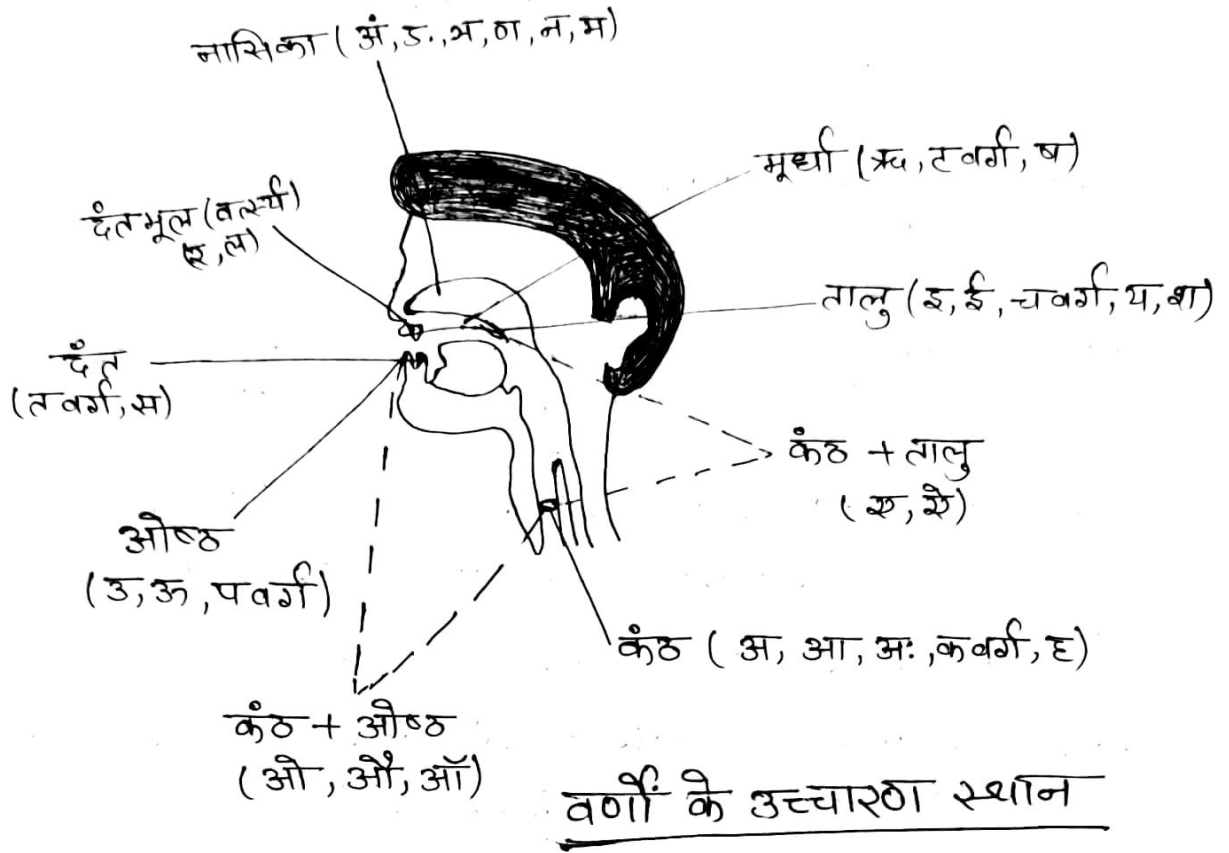 नासिका ( अं, ङ, ञ, ण, न, म)
मूर्धा (ऋ, टवर्ग, ष)
दंतमूल (वर्त्स्य)
(र, ल)
तालु (इ, ई, चवर्ग, य, श)
दंत
(तवर्ग, स)
कंठ + तालु
(ए, ऐ)
ओष्ठ
(उ, ऊ, पवर्ग)
कंठ ( अ, आ, अः, कवर्ग, ह)
कंठ + ओष्ठ
(ओ, औ, ऑ)
वर्णों के उच्चारण स्थान